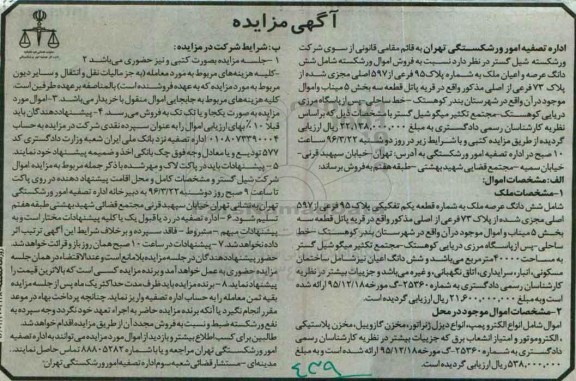 آگهی مزایده
اداره تصفیه امور ورشکستگی تهران به قائم مقامی قانونی از سوی شرکت
ورشکسته شیل گستر در نظر دارد نسبت به فروش اموال ورشکسته شامل شش
دانگ عرصه و اعیان ملک به شماره پلاک ۹۵ فرعی از ۵۹۷ اصلی مجزی شده از
پلاک ۷۳ فرعی از اصلی مذکور واقع در قریه پاتل قطعه سه بخش ۵ میناب و اموال
موجود در آن واقع در شهرستان بندر کوهستک - خط ساحلی - پس از پاسگاه مرزی
دریایی کوهستک - مجتمع تکثیر میگو شیل گستر با مشخصات ذیل که بر اساس
نظریه کارشناسان رسمی دادگستری به مبلغ ۴۲٫۱۳۸٫۰۰۰٫۰۰۰ ریال ارزیابی
گردیده از طریق مزایده کتبی و با شرایط زیر در روز دوشنبه ۹۶/۳/۲۲ ساعت
۱۰ صبح در اداره تصفیه امور ورشکستگی به آدرس: تهران - خیابان سپهبد قرنی -
خیابان سمیه - مجتمع قضایی شهید بهشتی - طبقه هفتم به فروش برساند:
الف: مشخصات اموال:
۱- مشخصات ملک:
شامل شش دانگ عرصه ملک به شماره قطعه یکم تفکیکی پلاک ۹۵ فرعی از ۵۹۷
اصلی مجزی شده از پلاک ۷۳ فرعی از اصلی مذکور واقع در قریه پاتل قطعه سه
بخش ۵ میناب و اموال موجود در آن واقع در شهرستان بندر کوهستک - خط
ساحلی - پس از پاسگاه مرزی دریایی کوهستک - مجتمع تکثیر میگو شیل گستر
به مساحت ۴۰۰۰۰ متر مربع می‌باشد و شش دانگ اعیان نیز شامل ساختمان
مسکونی، انبار، سرایداری، اتاق نگهبانی، و غیره می‌باشد و جزییات بیشتر در نظریه
کارشناسان رسمی دادگستری به شماره ۲۵۳۶۰-گ مورخه ۹۵/۱۲/۱۸ ارائه شده
است و به مبلغ ۲۱٫۶۰۰٫۰۰۰٫۰۰۰ ریال ارزیابی گردیده است.
۲- مشخصات اموال موجود در محل
اموال شامل انواع الکتروپمپ، انواع دیزل ژنراتور، مخزن گازوییل، مخزن پلاستیکی
، الکتروموتور و امتیاز انشعاب برق که جزییات بیشتر در نظریه کارشناسان رسمی
دادگستری به شماره ۲۵۳۶۰-گ مورخه ۹۵/۱۲/۱۸ ارائه شده است و به مبلغ
۵۳۸٫۰۰۰٫۰۰۰ ریال ارزیابی گردیده است.
ب: شرایط شرکت در مزایده:
۱- جلسه مزایده بصورت کتبی و نیز حضوری می‌باشد ۲
- کلیه هزینه‌های مربوط به مورد معامله (به جز مالیات نقل و انتقال و سایر دیون
مربوط به مورد مزایده که به عهده فروشنده است) بالمناصفه بر عهده طرفین است
کلیه هزینه‌های مربوط به جابجایی اموال منقول با خریدار می‌باشد. ۳- اموال مورد
مزایده به صورت یکجا و یا تک تک به فروش می‌رسند ۴- پیشنهاد دهندگان باید
قبلا ۱۰٪ بهای ارزیابی اموال را به عنوان سپرده نقدی شرکت در مزایده به حساب
اداره تصفیه نزد بانک ملی ایران شعبه وزارت دادگستری کد
۵۷۷ تودیع و یا معادل وجه فوق چک بانکی اخذ و ضمیمه پیشنهاد خود نمایند.
۵- پیشنهادات باید در پاکت لاک و مهر شده با ذکر جمله مربوط به مزایده اموال
شرکت شیل گستر و مشخصات کامل و محل اقامت پیشنهاد دهنده در روی پاکت
تا ساعت ۹ صبح روز دوشنبه ۹۶/۳/۲۲ به دبیرخانه اداره تصفیه امور ورشکستگی
تهران به نشانی تهران خیابان سپهبد قرنی مجتمع قضائی شهید بهشتی طبقه هفتم
تسلیم شود. ۶- اداره تصفیه در رد یا قبول یک یا کلیه پیشنهادات مختار است و به
پیشنهادات مبهم - مشروط - فاقد سپرده و بر خلاف شرایط این آگهی ترتیب اثر
داده نخواهد شد. ۷- پیشنهادات در ساعت ۱۰ صبح همان روز باز و قرائت خواهد شد.
حضور پیشنهاد دهندگان در جلسه مزایده بلامانع است و عندالاقتضاء در همان جلسه
مزایده حضوری به عمل خواهد آمد و برنده مزایده کسی است که بالاترین قیمت را
پیشنهاد نماید. ۸- برنده مزایده باید ظرف مدت حداکثر یک ماه پس از جلسه مزایده
بقیه ثمن معامله را به حساب اداره تصفیه واریز نماید چنانچه پرداخت بهاء در موعد
مقرر انجام نگیرد یا آنکه برنده مزایده حاضر به اجراء تعهد خود نگردد وجه سپرده به
نفع ورشکسته ضبط و نسبت به فروش مجدد آن از طریق مزایده اقدام خواهد شد.
طالبین برای کسب اطلاع بیشتر و بازدید از اموال مورد مزایده می‌توانند به اداره تصفیه
امور ورشکستگی تهران مراجعه و یا با شماره ۸۸۸۰۵۲۸۲ تماس حاصل نمایند.
مدینه‌ای - مستشار قضائی شعبه سوم اداره تصفیه امور ورشکستگی تهران